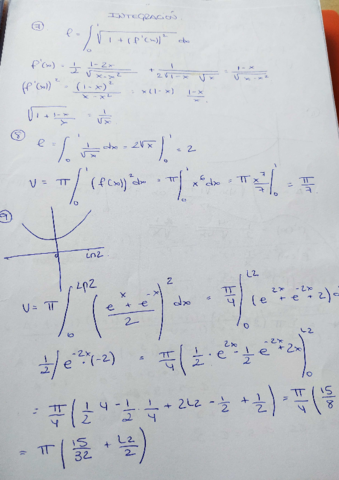 INTEGRACIÓN
⑦ l = ∫₀¹ √(1 + (f'(x))²) dx
f'(x) = 1/2 (1-2x)/√(x-x²) + 1/(2√(1-x) √x) = (1-x)/√(x-x²)
(f'(x))² = (1-x)²/(x-x²) = x(1-x) (1-x)/x
√(1 + (1-x)/x) = 1/√x
⑧ l = ∫₀¹ 1/√x dx = 2√x |₀¹ = 2
V = π ∫₀¹ (f(x))² dx = π ∫₀¹ x⁶ dx = π x⁷/7 |₀¹ = π/7
⑨
0 ln2
V = π ∫₀^(Ln2) ((eˣ + e⁻ˣ)/2)² dx = π/4 ∫₀^(L2) (e²ˣ + e⁻²ˣ + 2) d
1/2 ∫ e⁻²ˣ·(-2) = π/4 (1/2 · e²ˣ - 1/2 e⁻²ˣ + 2x) |₀^(L2)
= π/4 (1/2 4 - 1/2 · 1/4 + 2L2 - 1/2 + 1/2) = π/4 (15/8
= π (15/32 + L2/2)